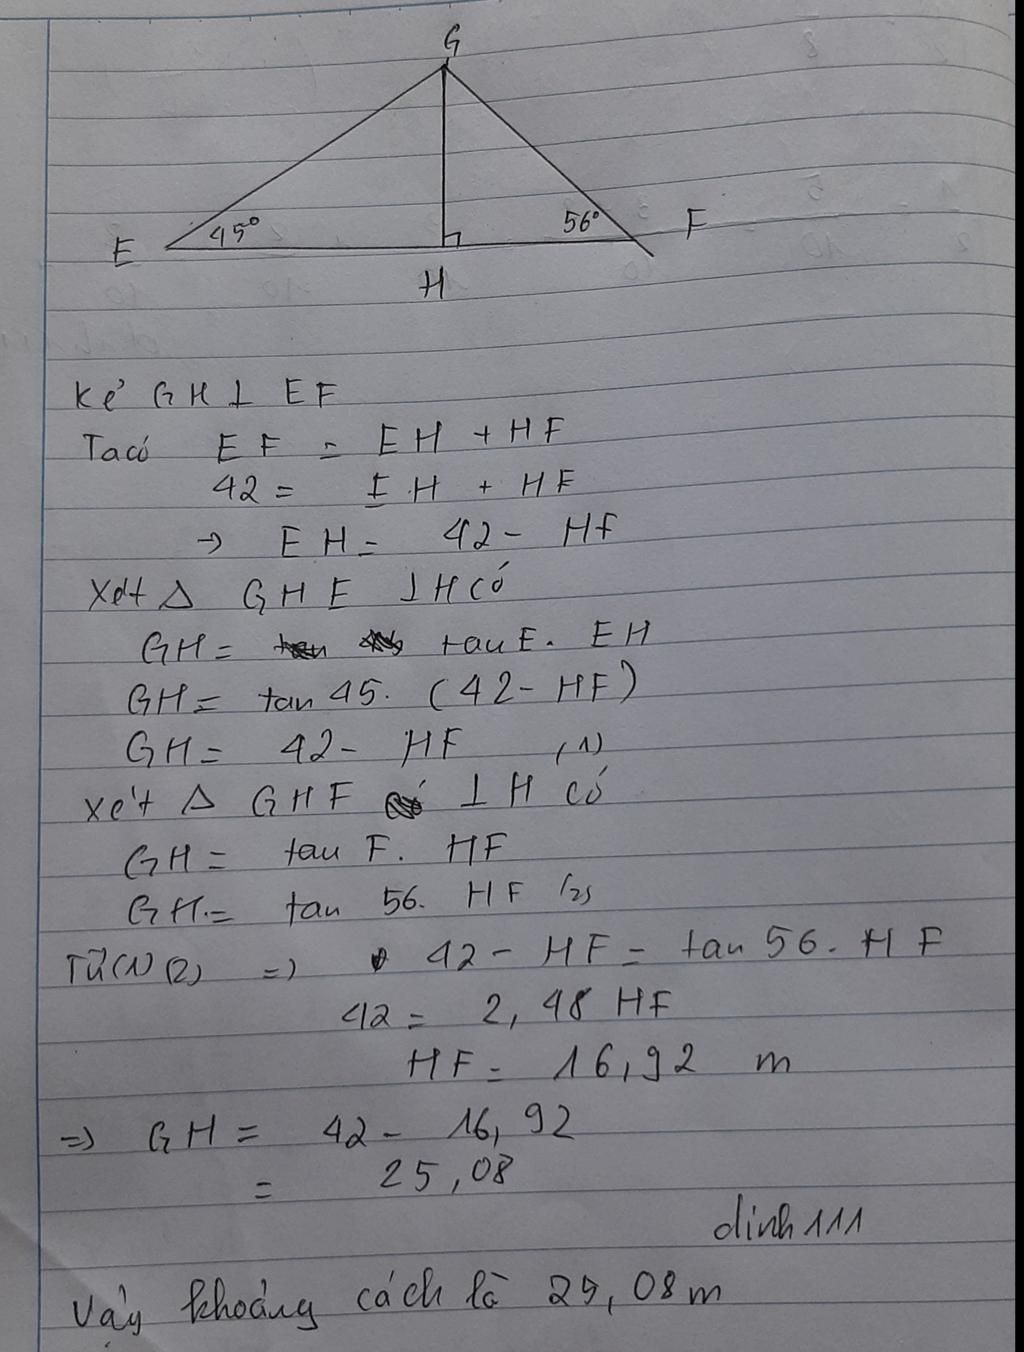 G
45°
56°
F
E
H
Kẻ GH ⊥ EF
Ta có EF = EH + HF
42 = EH + HF
→ EH = 42 - HF
Xét Δ GHE ⊥ H có
GH = tan E. EH
GH = tan 45. (42 - HF)
GH = 42 - HF (1)
Xét Δ GHF ⊥ H có
GH = tan F. HF
GH = tan 56. HF (2)
Từ (1) (2) => 42 - HF = tan 56. HF
42 = 2,48 HF
HF = 16,92 m
=> GH = 42 - 16,92
= 25,08
dinh111
Vậy khoảng cách là 25,08m